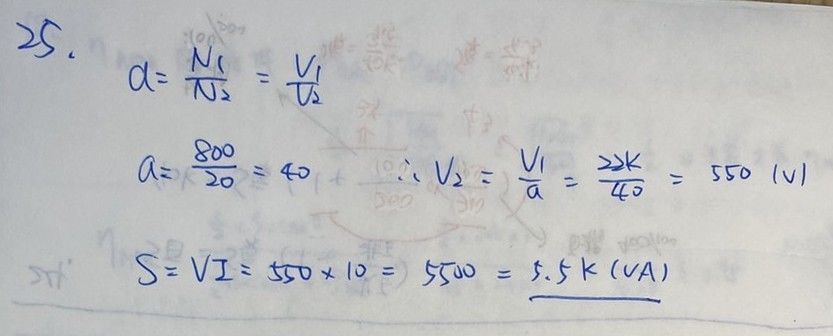 25.
a = N1/N2 = V1/V2
a = 800/20 = 40 ∴ V2 = V1/a = 22K/40 = 550 (V)
S = VI = 550 × 10 = 5500 = 5.5K (VA)